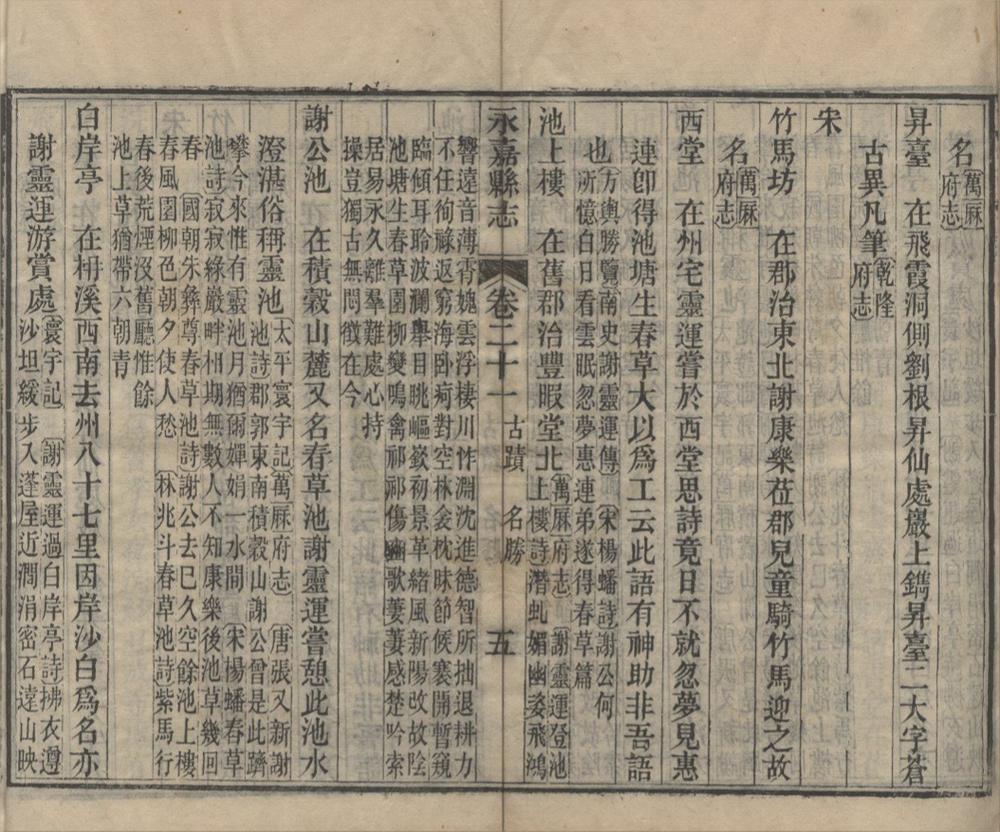 名萬厤府志
昇臺　在飛霞洞側劉根昇仙處巖上鐫昇臺二大字蒼
古異凡筆乾隆府志
宋
竹馬坊　在郡治東北謝康樂莅郡兒童騎竹馬迎之故
名萬厤府志
西堂　在州宅靈運嘗於西堂思詩竟日不就忽夢見惠
連卽得池塘生春草大以爲工云此語有神助非吾語
也方輿勝覽　南史謝靈運傳　宋楊蟠詩謝公何
所憶白日看雲眠忽夢惠連弟遂得春草篇
池上樓　在舊郡治豐暇堂北萬厤府志　謝靈運登池
上樓詩潛虬媚幽姿飛鴻
響遠音薄霄媿雲浮棲川怍淵沈進德智所拙退耕力
不任徇祿返窮海卧疴對空林衾枕昧節候褰開暫窺
臨傾耳聆波瀾舉目眺嶇嶔初景革緒風新陽改故陰
池塘生春草園柳變鳴禽祁祁傷豳歌萋萋感楚吟索
居易永久離羣難處心持
操豈獨古無悶徵在今
永嘉縣志　卷二十一　古蹟　名勝　五
謝公池　在積穀山麓又名春草池謝靈運嘗憩此池水
澄湛俗稱靈池太平寰宇記　萬厤府志　唐張又新謝
池詩郡郭東南積穀山謝公曾是此躋
攀今來惟有靈池月猶爾嬋娟一水間　宋楊蟠春草
池詩寂寂綠巖畔相期無數人不知康樂後池草幾回
春　國朝朱彝尊春草池詩謝公去已久空餘池上樓
春風一園柳色朝夕使人愁　林兆斗春草池詩紫馬行
春後荒煙沒舊廳惟餘
池上草猶帶六朝青
白岸亭　在枏溪西南去州八十七里因岸沙白爲名亦
謝靈運游賞處寰宇記　謝靈運過白岸亭詩拂衣遵
沙坦緩步入蓬屋近澗涓密石遠山映